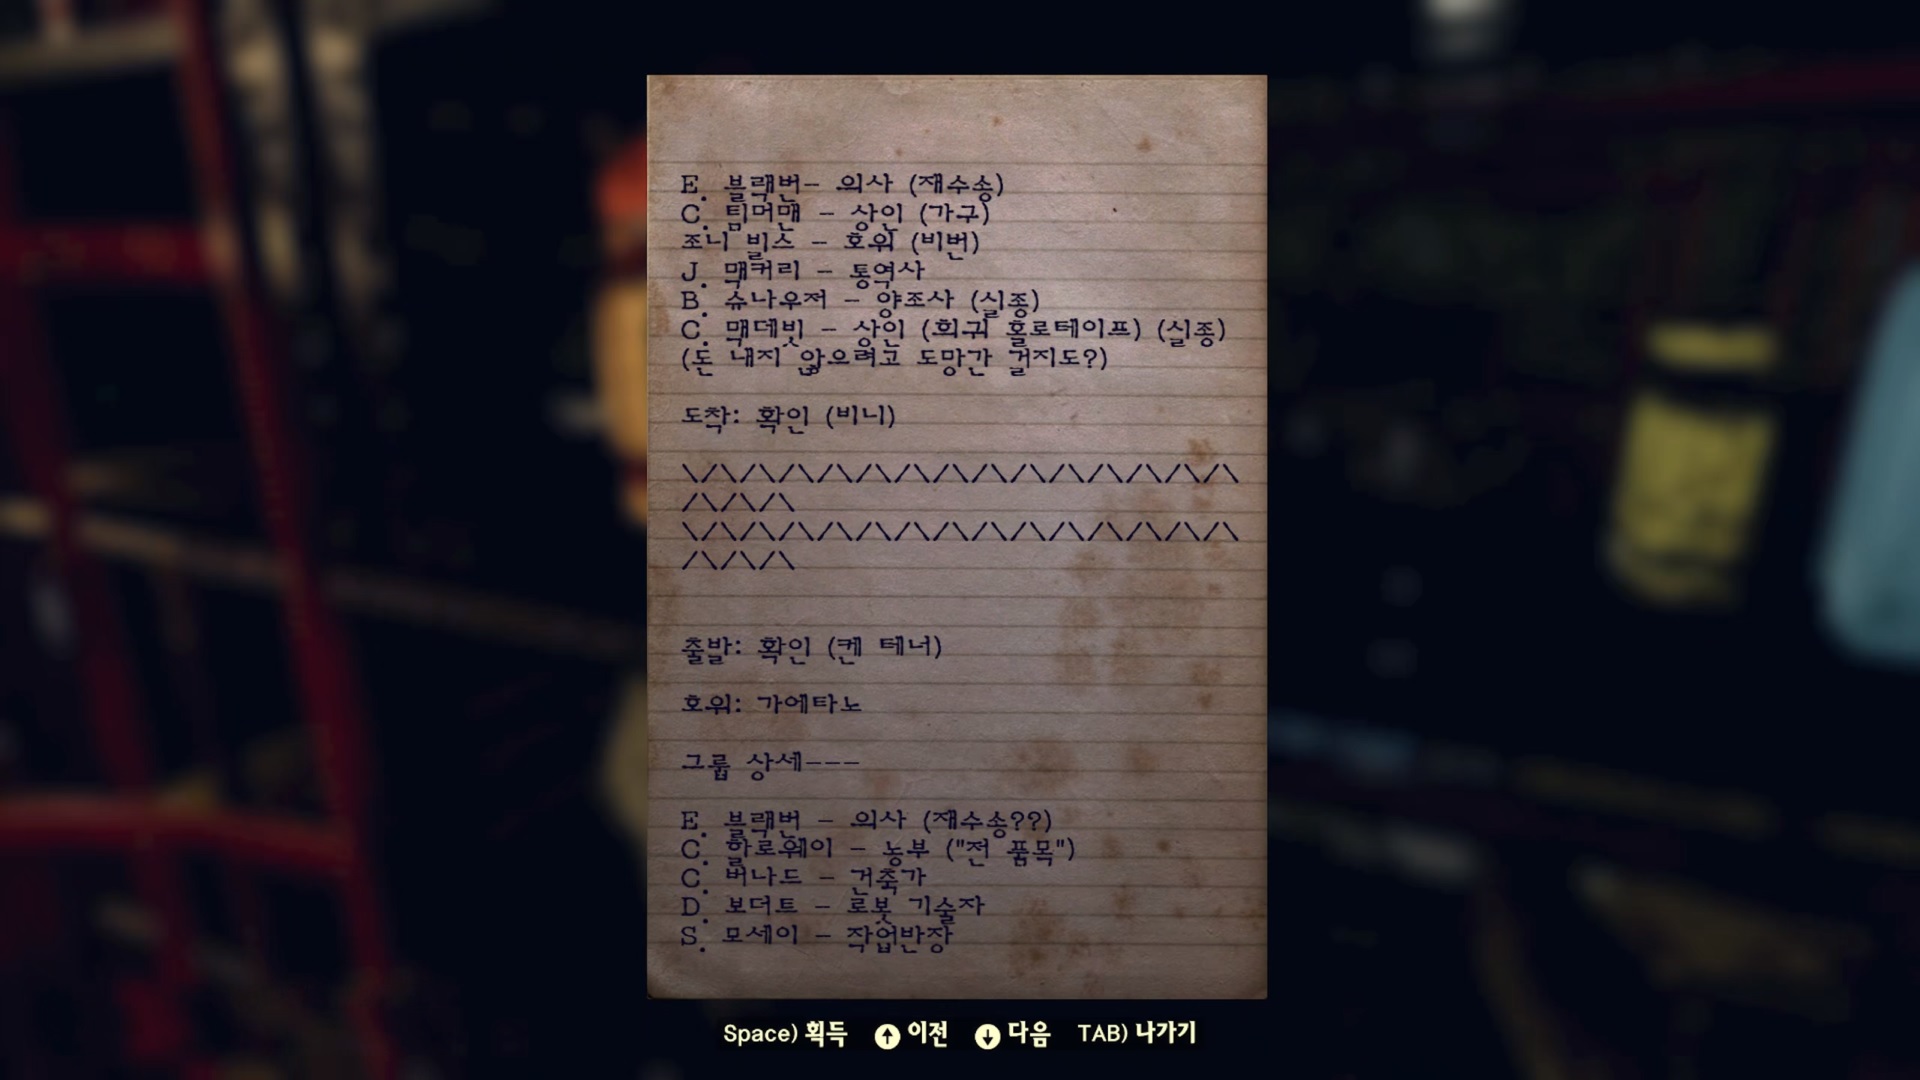 E. 블랙번- 의사 (재수송)
C. 팀머맨 - 상인 (가구)
조니 빌스 - 호위 (비번)
J. 맥커리 - 통역사
B. 슈나우저 - 양조사 (실종)
C. 맥데빗 - 상인 (희귀 홀로테이프) (실종)
(돈 내지 않으려고 도망간 걸지도?)
도착: 확인 (비니)
\/\/\/\/\/\/\/\/\/\/\/\/\/\/\
/\/\/\
\/\/\/\/\/\/\/\/\/\/\/\/\/\/\
/\/\/\
출발: 확인 (켄 테너)
호위: 가에타노
그룹 상세---
E. 블랙번 - 의사 (재수송??)
C. 할로웨이 - 농부 ("전 품목")
C. 버나드 - 건축가
D. 보더트 - 로봇 기술자
S. 모세이 - 작업반장
Space) 획득 ↑ 이전 ↓ 다음 TAB) 나가기